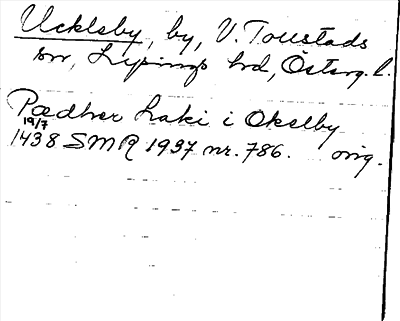 Ucklsby, by, V. Toustads
sn, Lysings hd, Österg. l.
Pædher Laki i Okslby
19/7
1438 SMR 1937 nr. 786. orig.